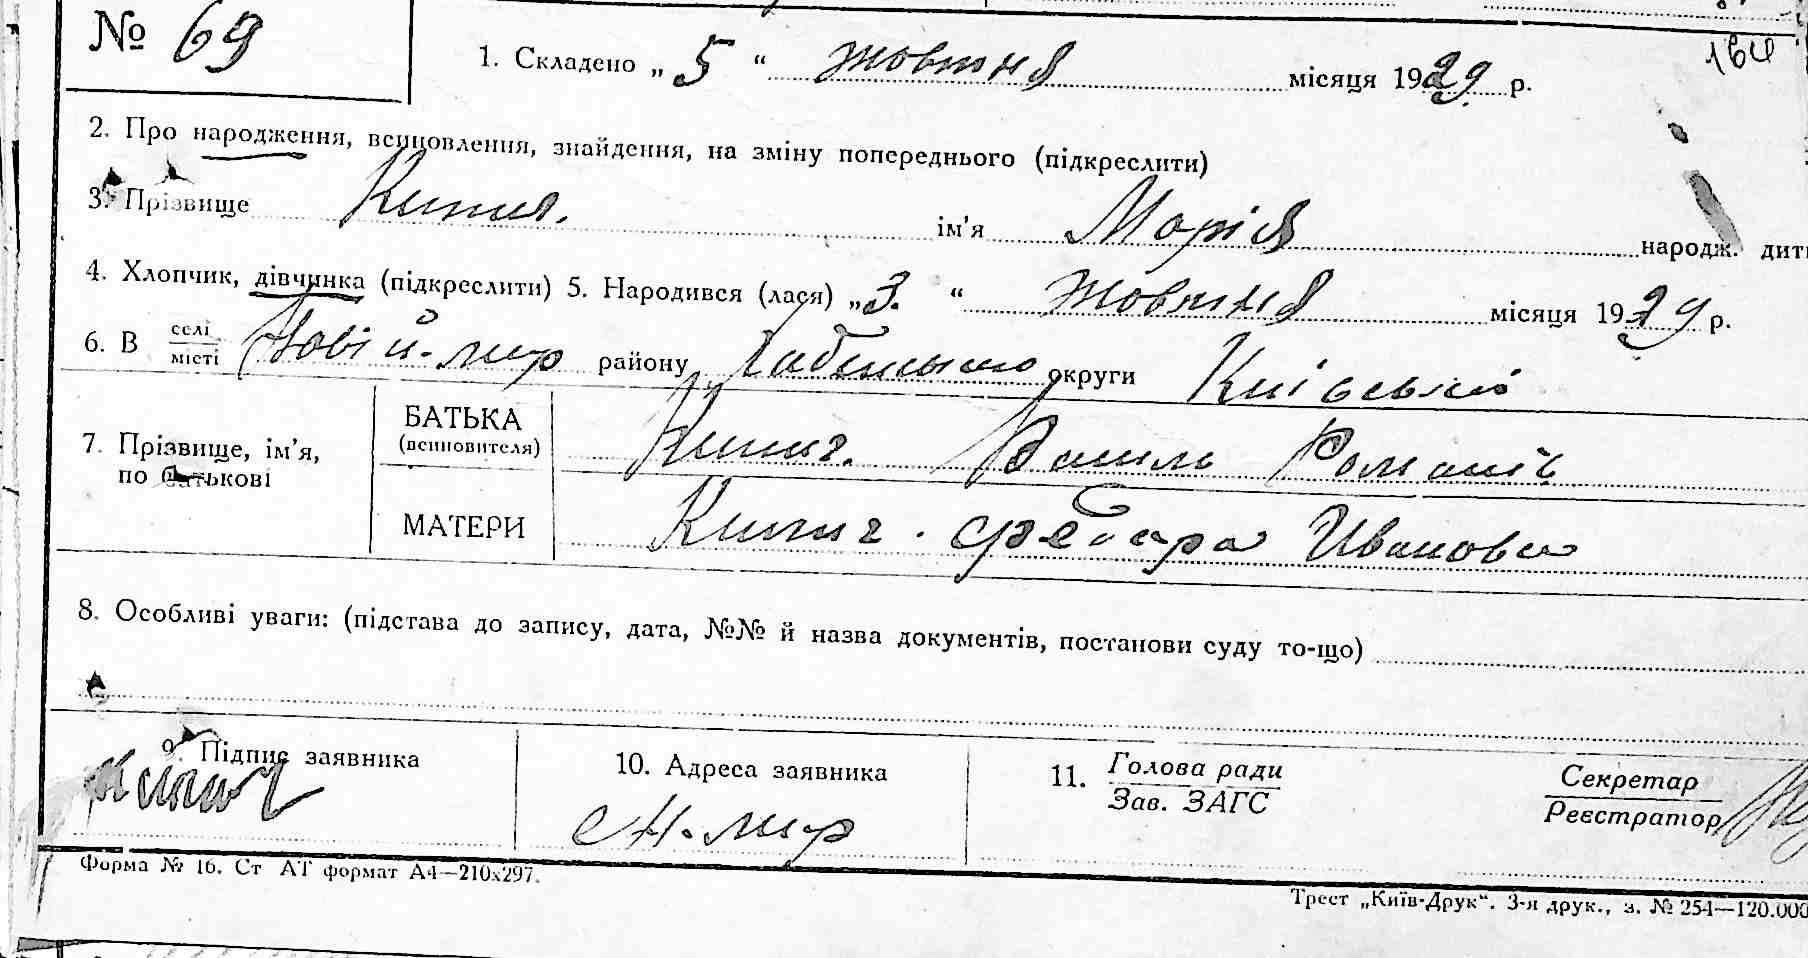 № 69
1. Складено „ 5 “ жовтня місяця 1929 р.
2. Про народження, всиновлення, знайдення, на зміну попереднього (підкреслити)
3. Прізвище ім'я Марія народж. дит
4. Хлопчик, дівчинка (підкреслити) 5. Народився (лася) „3. “ жовтня місяця 1929 р.
6. В селі місті Новій-мир району округи Київської
7. Прізвище, ім'я, по батькові
БАТЬКА (всиновителя) Кинич. Василь Романів
МАТЕРИ Кинич. Федора Иванова
8. Особливі уваги: (підстава до запису, дата, №№ й назва документів, постанови суду то-що)
9. Підпис заявника
10. Адреса заявника
11. Голова ради Зав. ЗАГС
Секретар Реєстратор
Кинич
с Н. мир
Форма № 16. Ст АТ формат А4—210х297.
Трест „Київ-Друк“. 3-я друк., з. № 254—120.000